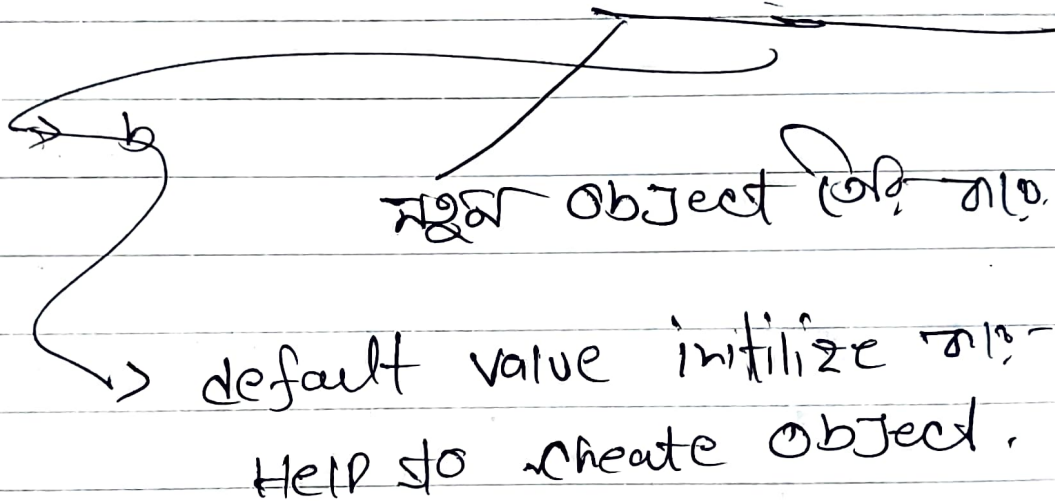 b
নতুন Object তৈরি করে.
default value initilize করে-
Help to create Object.